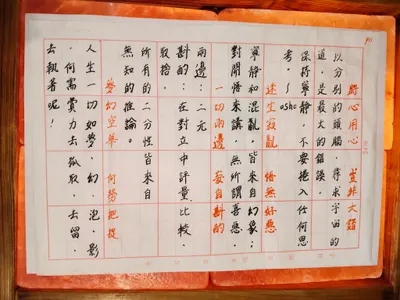 將心用心 豈非大錯
以分別的頭腦,尋求宇宙的
道,是最大的錯誤。
保持寧靜,不要捲入任何思
考。~osho
迷生寂亂 悟無好惡
寧靜和混亂,皆來自幻象;
對開悟來講,無所謂善惡。
一切兩邊 妄自斟酌
兩邊:二元
斟酌:在對立中評量、比較、
取捨。
所有的二分性,皆來自
無知的推論。
夢幻空華 何勞把捉
人生一切如夢、幻、泡、影
,何需費力去抓取、去留、
去執著呢!